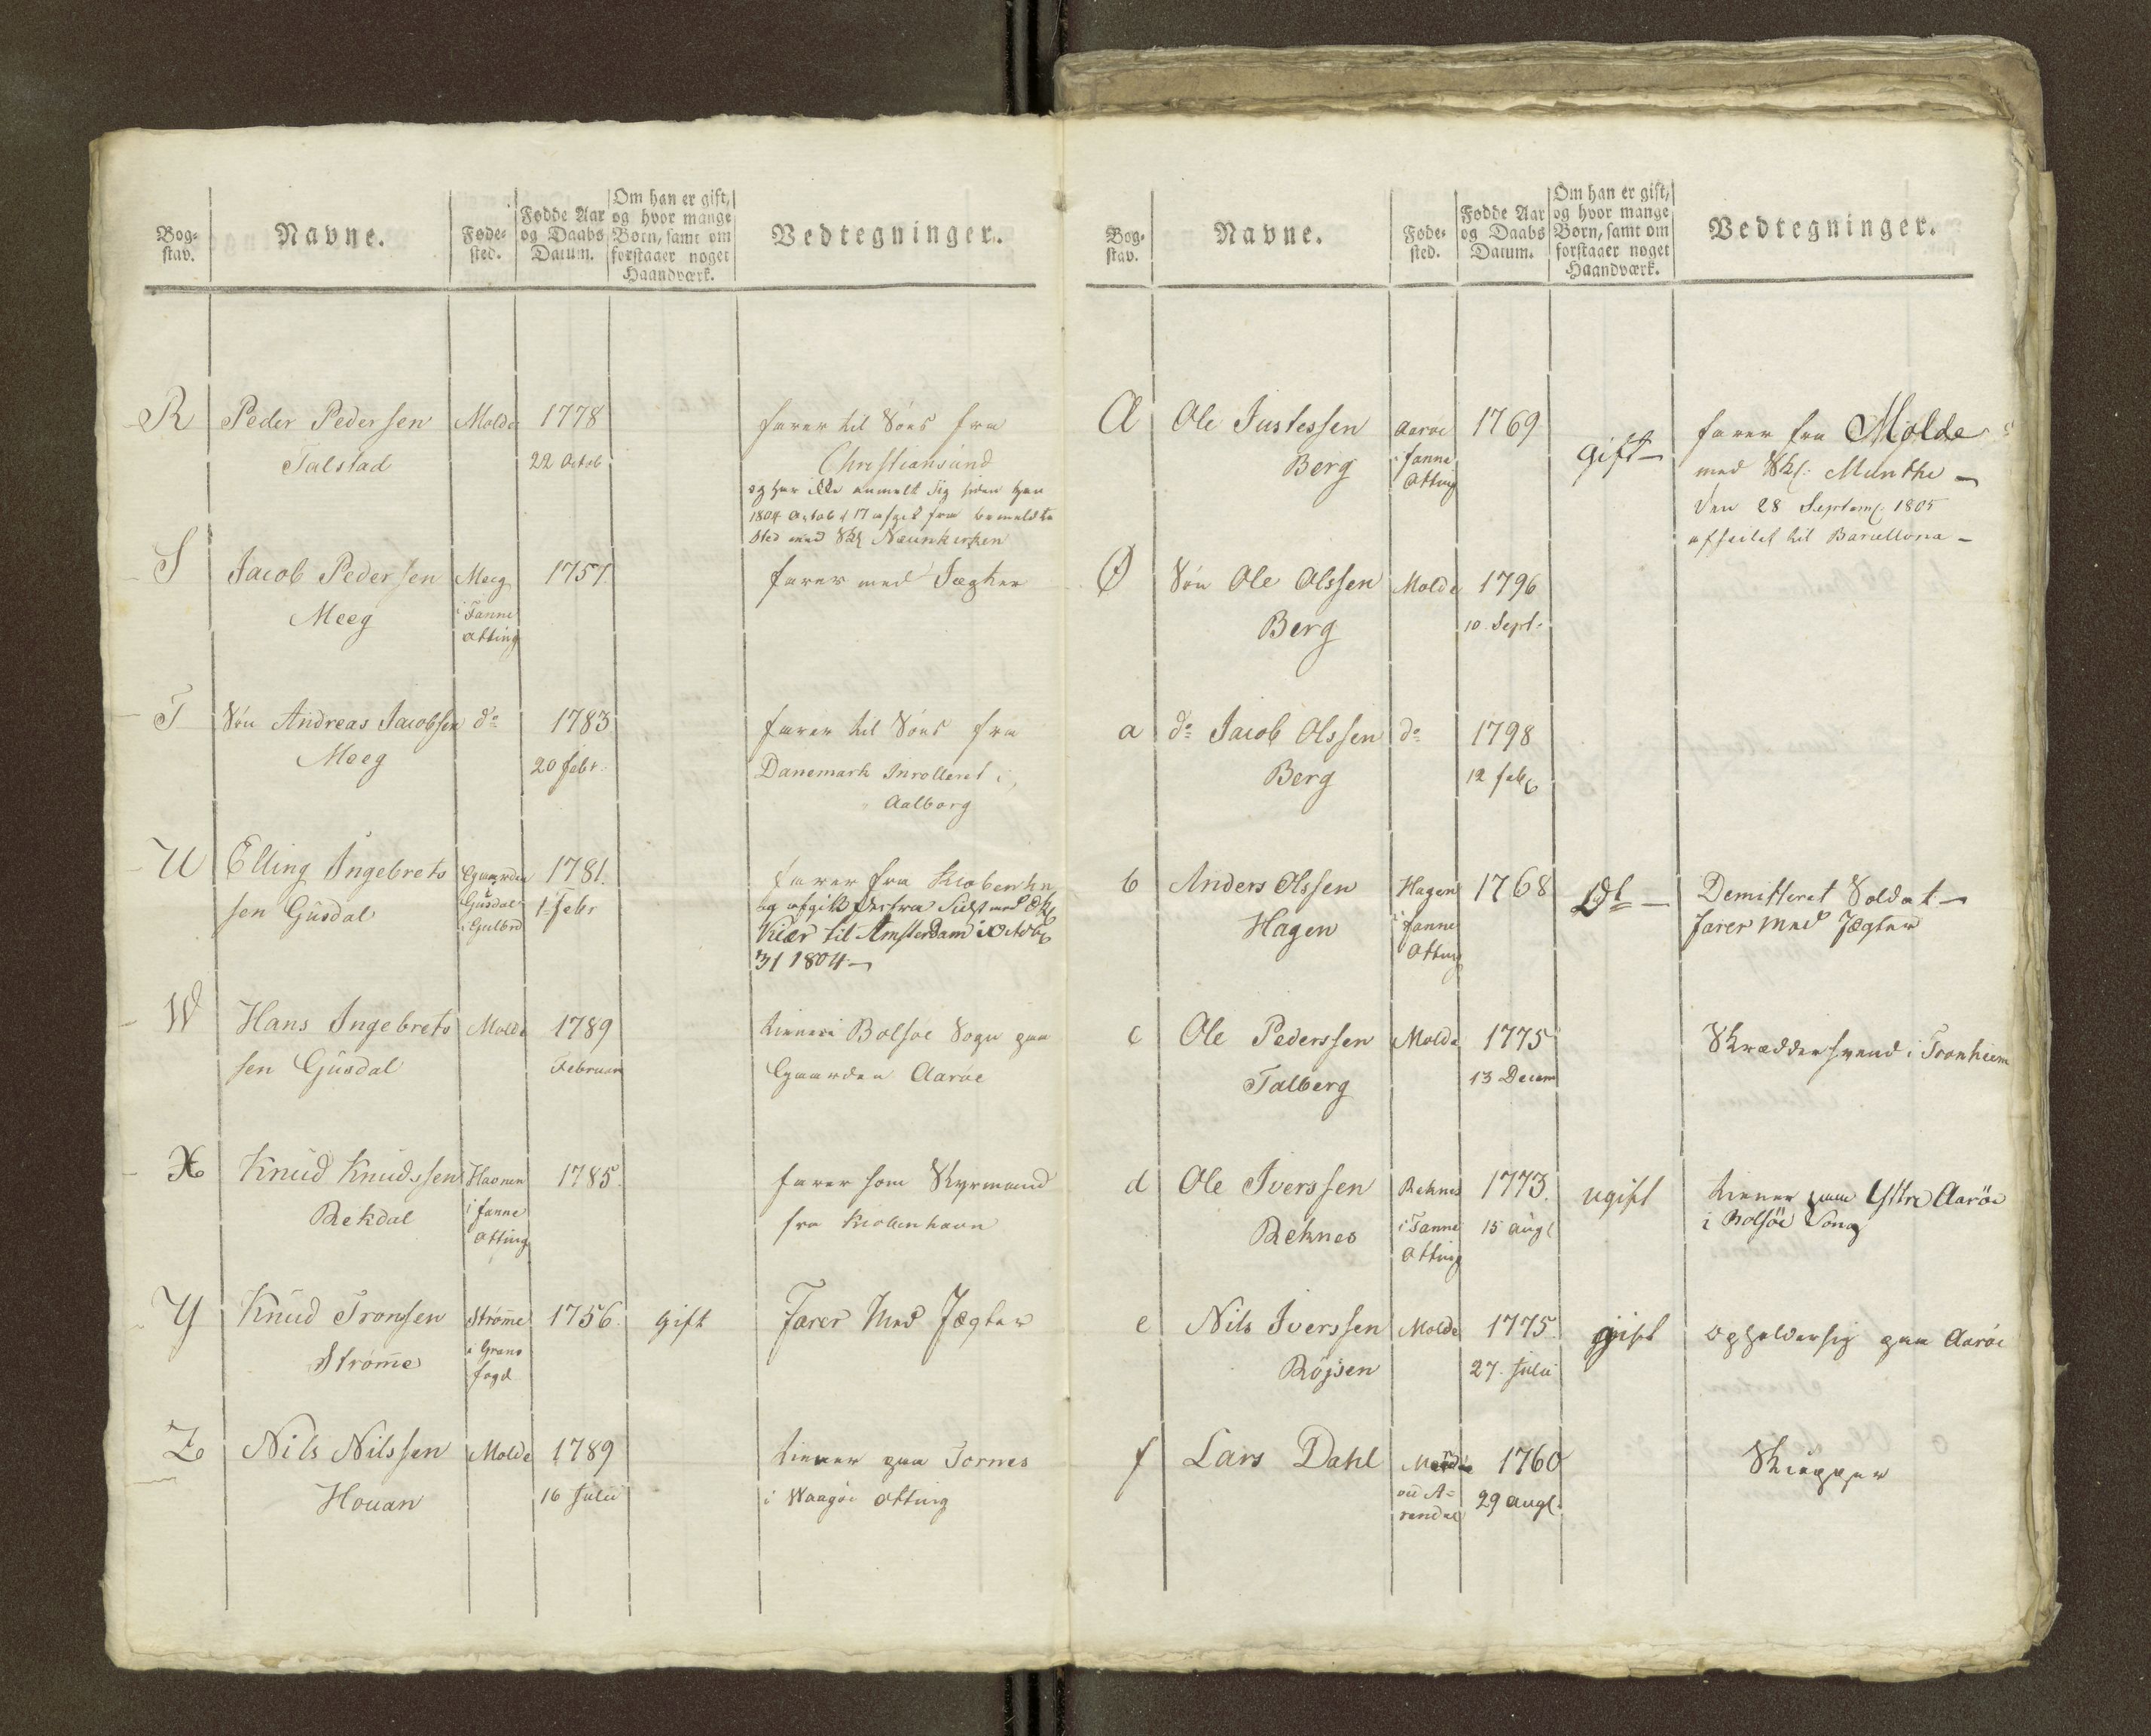 Bog-
stav.
Navne.
Føde-
sted.
Fødde Aar
og Daabs
Datum.
Om han er gift,
og hvor mange
Børn, samt om
forstaaer noget
Haandværk.
Vedtegninger.
R
Peder Pedersen
Talstad
Molde
1778
22 Octob
farer til Søes fra
Christiansund
og har ikke anmelt sig siden han
1804 Octob d 17 afgik fra bemeldte
Sted med Skl Neunkirken
S
Jacob Pedersen
Meeg
Meeg
i Fanne
Otting
1757.
farer med Jægter
T
Søn Andreas Jacobsen
Meeg
do
1783
20 febr.
farer til Søes fra
Danemark Inrolleret i
Aalborg
U
Elling Ingebrets
sen Gusdal
Gaarden
Gusdal
i Gulbrd
1781.
1 Febr
farer fra Kiobenhn
og afgik derfra sidst med Sk
Kiær til Amsterdam i Octob
31 1804 -
W
Hans Ingebrets
sen Gusdal
Molde
1789
Februar
tiener i Bolsøe Sogn paa
Gaarden Aarøe
X
Knud Knudssen
Rekdal
Haonen
i fanne
Otting
1785.
farer som Styrmand
fra Kiøbenhavn
Y
Knud Tronsen
Strøm̄e
Strøm̄e
fogd
1756.
gift
Farer Med Jægter
Z
Nils Nilssen
Houan
Molde
1789
16 Julii
tiener paa Tornes
i Waagøe Otting
Bog-
stav.
Navne.
Føde-
sted.
Fødde Aar
og Daabs
Datum.
Om han er gift,
og hvor mange
Børn, samt om
forstaaer noget
Haandværk.
Vedtegninger.
Æ
Ole Justessen
Berg
Aarøe
i fanne
Otting
1769
gift -
farer fra Molde
med Skl: Munthe -
den 28 Septemb. 1805
afseilet til Barcellona -
Ø
Søn Ole Olssen
Berg
Molde
1796
10. Sept.
a
do Jacob Olssen
Berg
do
1798
12 feb
b
Anders Olssen
Hagen
Hagen
i fanne
Otting
1768
Dt -
Demitteret Soldat -
farer med Jægter
c
Ole Pederssen
Talberg
Molde
1775
13 Decem
Skræddersvend i Tronhiem
d
Ole Iverssen
Reknes
Reknes
i Fanne
Otting
1773.
15 aug
ugift
tiener paa Yttre Aarøe
i Bolsöe Song
e
Nils Iverssen
Röjsen
Molde
1775
27. Julii
gift
opholder sig paa Aarøe
f
Lars Dahl
ved A=
rendal
1760
29 aug.
Skipper